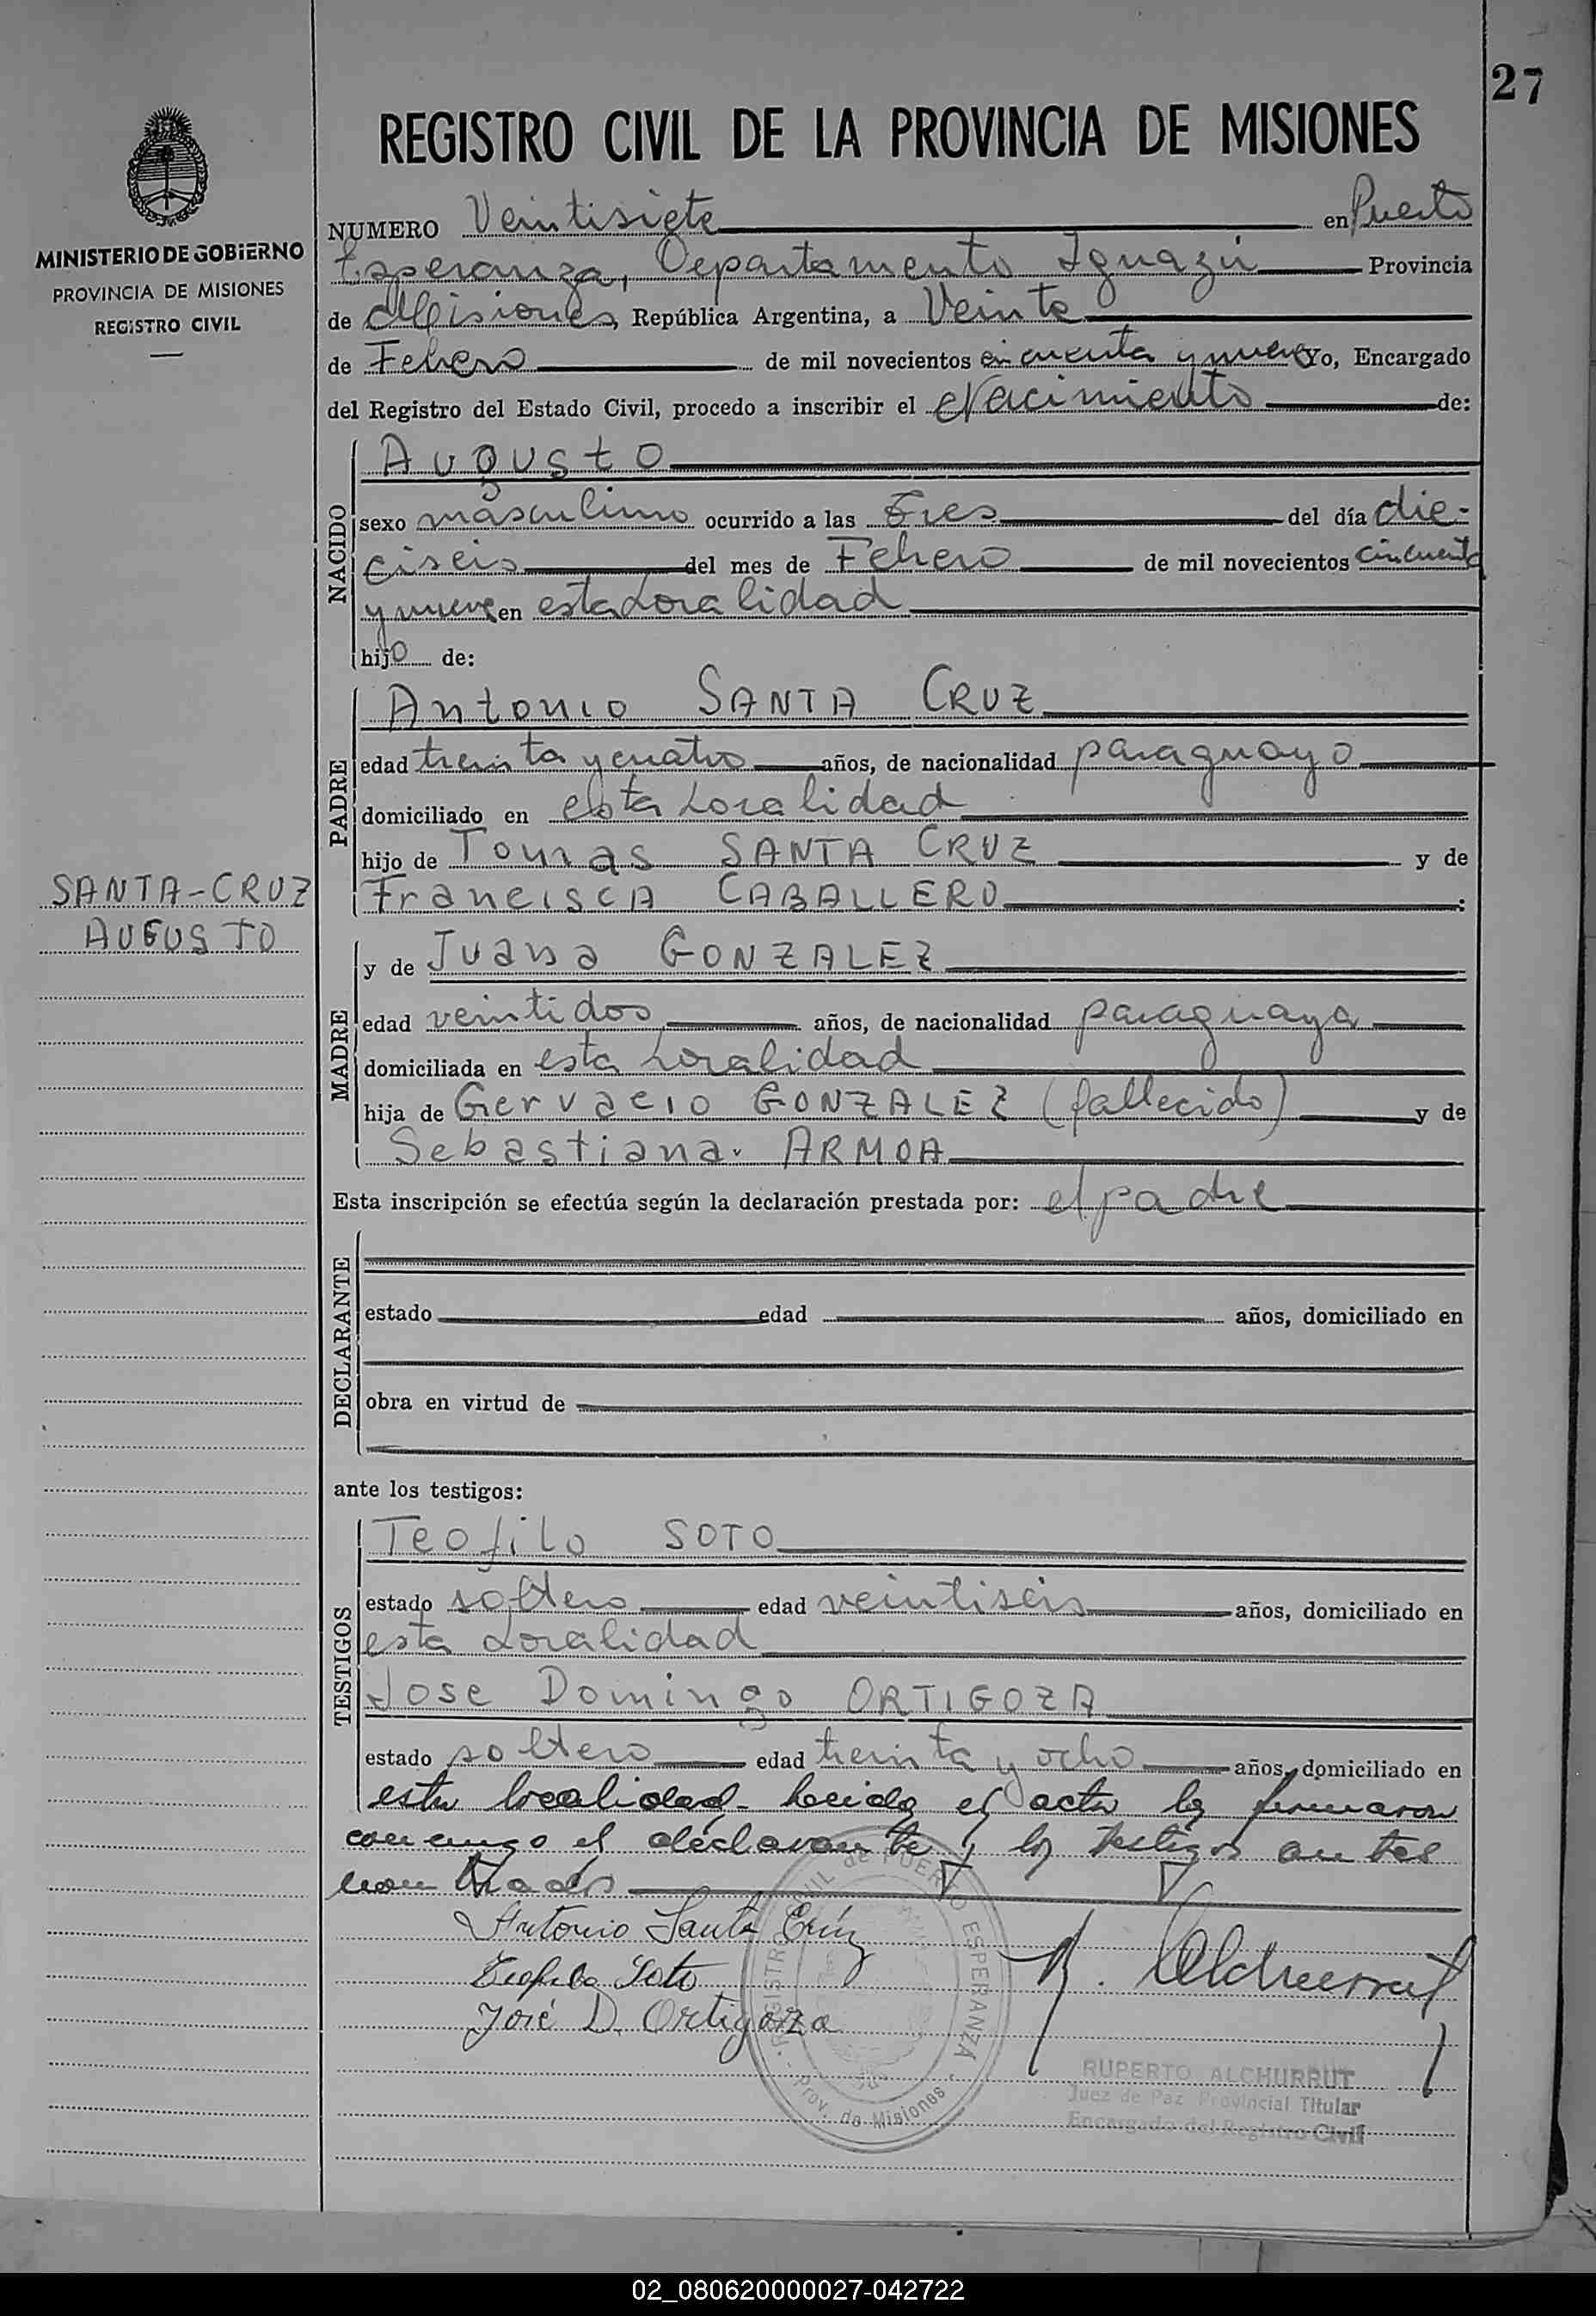 27
REGISTRO CIVIL DE LA PROVINCIA DE MISIONES
MINISTERIO DE GOBIERNO
PROVINCIA DE MISIONES
REGISTRO CIVIL
NUMERO Veintisiete en Puerto
Esperanza, Departamento Iguazú Provincia
de Misiones, República Argentina, a Veinte
de Febero de mil novecientos cincuenta y nueve Yo, Encargado
del Registro del Estado Civil, procedo a inscribir el Nacimiento de:
NACIDO
Augusto
sexo masculino ocurrido a las tres del día die-
ciseis del mes de Febero de mil novecientos cincuenta
y nueve en esta Localidad
hijo de:
PADRE
Antonio SANTA CRUZ
edad treinta y cuatro años, de nacionalidad paraguayo
domiciliado en esta Localidad
hijo de Tomas SANTA CRUZ y de
Francisca CABALLERO :
SANTA-CRUZ
AUGUSTO
MADRE
y de Juana GONZALEZ
edad veintidos años, de nacionalidad paraguaya
domiciliada en esta Localidad
hija de Gervacio GONZALEZ (fallecido) y de
Sebastiana. ARMOA
Esta inscripción se efectúa según la declaración prestada por: el padre
DECLARANTE
estado edad años, domiciliado en
obra en virtud de
ante los testigos:
TESTIGOS
Teofilo SOTO
estado soltero edad veintiseis años, domiciliado en
esta Localidad
Jose Domingo ORTIGOZA
estado soltero edad treinta y ocho años, domiciliado en
esta localidad - Leida el acta la firmaron
conmigo el declarante y los testigos antes
nombrados
Antonio Santa Crúz
Teofilo Soto
José D. Ortigoza
R. Alchurrut
REGISTRO CIVIL de PUERTO ESPERANZA
- Prov. de Misiones -
RUPERTO ALCHURRUT
Juez de Paz Provincial Titular
Encargado del Registro Civil
02_080620000027-042722